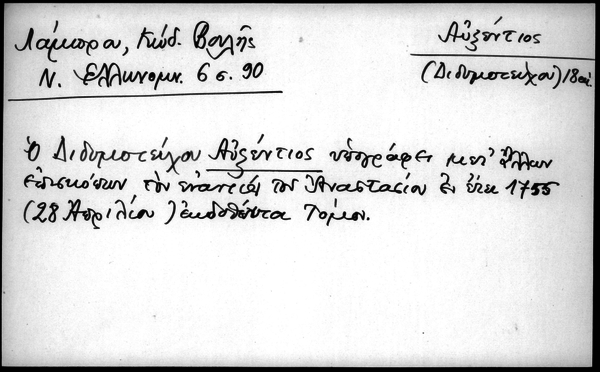 Λάμπρου, Κώδ. Βουλῆς
Ν. Ἑλληνομν. 6 σ. 90
Αὐξέντιος
(Διδυμοτείχου) 18 αἰ.
Ὁ Διδυμοτείχου Αὐξέντιος ὑπογράφει μετ' ἄλλων
ἐπισκόπων τὸν ἐναντίον τοῦ Ἀναστασίου ἐν ἔτει 1755
(28 Ἀπριλίου) ἐκδοθέντα Τόμον.